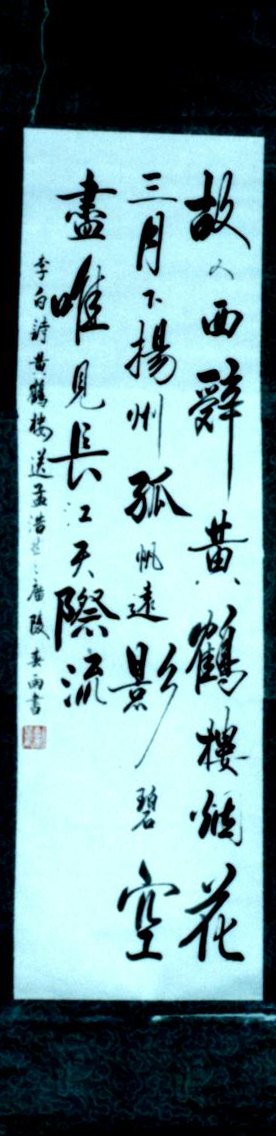 故人西辭黄鶴樓煙花
三月下揚州孤帆遠影碧空
盡唯見長江天際流
李白詩黄鶴樓送孟浩然之廣陵春雨書